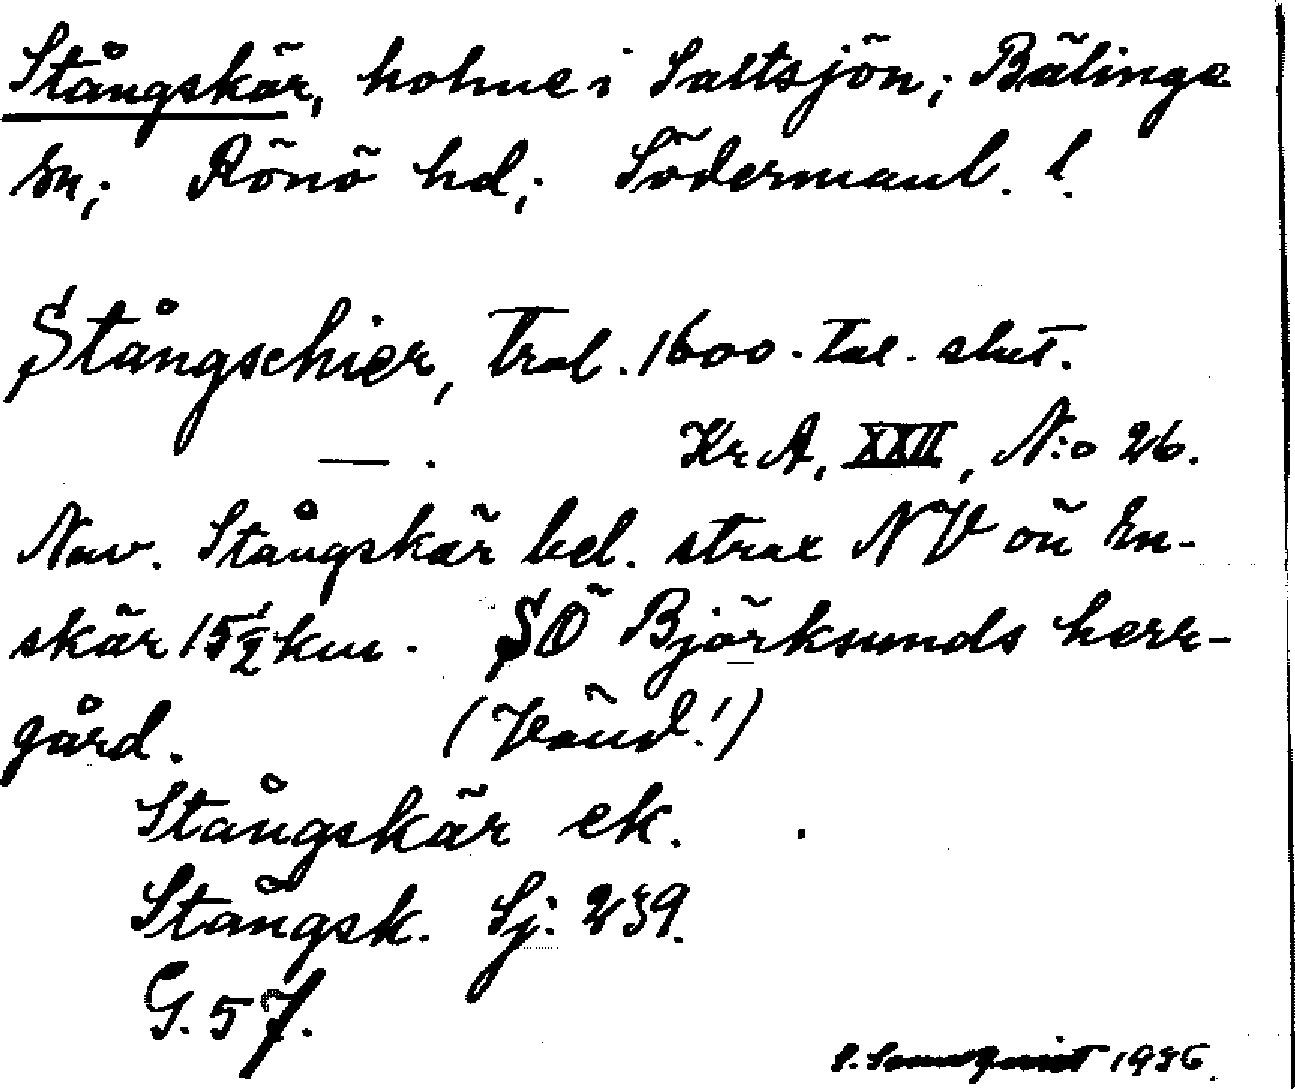 Stångskär, holme i Saltsjön; Bälinge
sn; Rönö hd; Södermanl. l.
Stångschier, Trol. 1600-tal. slut.
— . Kr A, XXII, N:o 26.
Nuv. Stångskär bel. strax NV ön En-
skär 15 1/2 km. SÖ Björksunds herr-
gård. (Vänd!)
Stångskär ek.
Stångsk. Sj: 239.
G. 57.
1936.